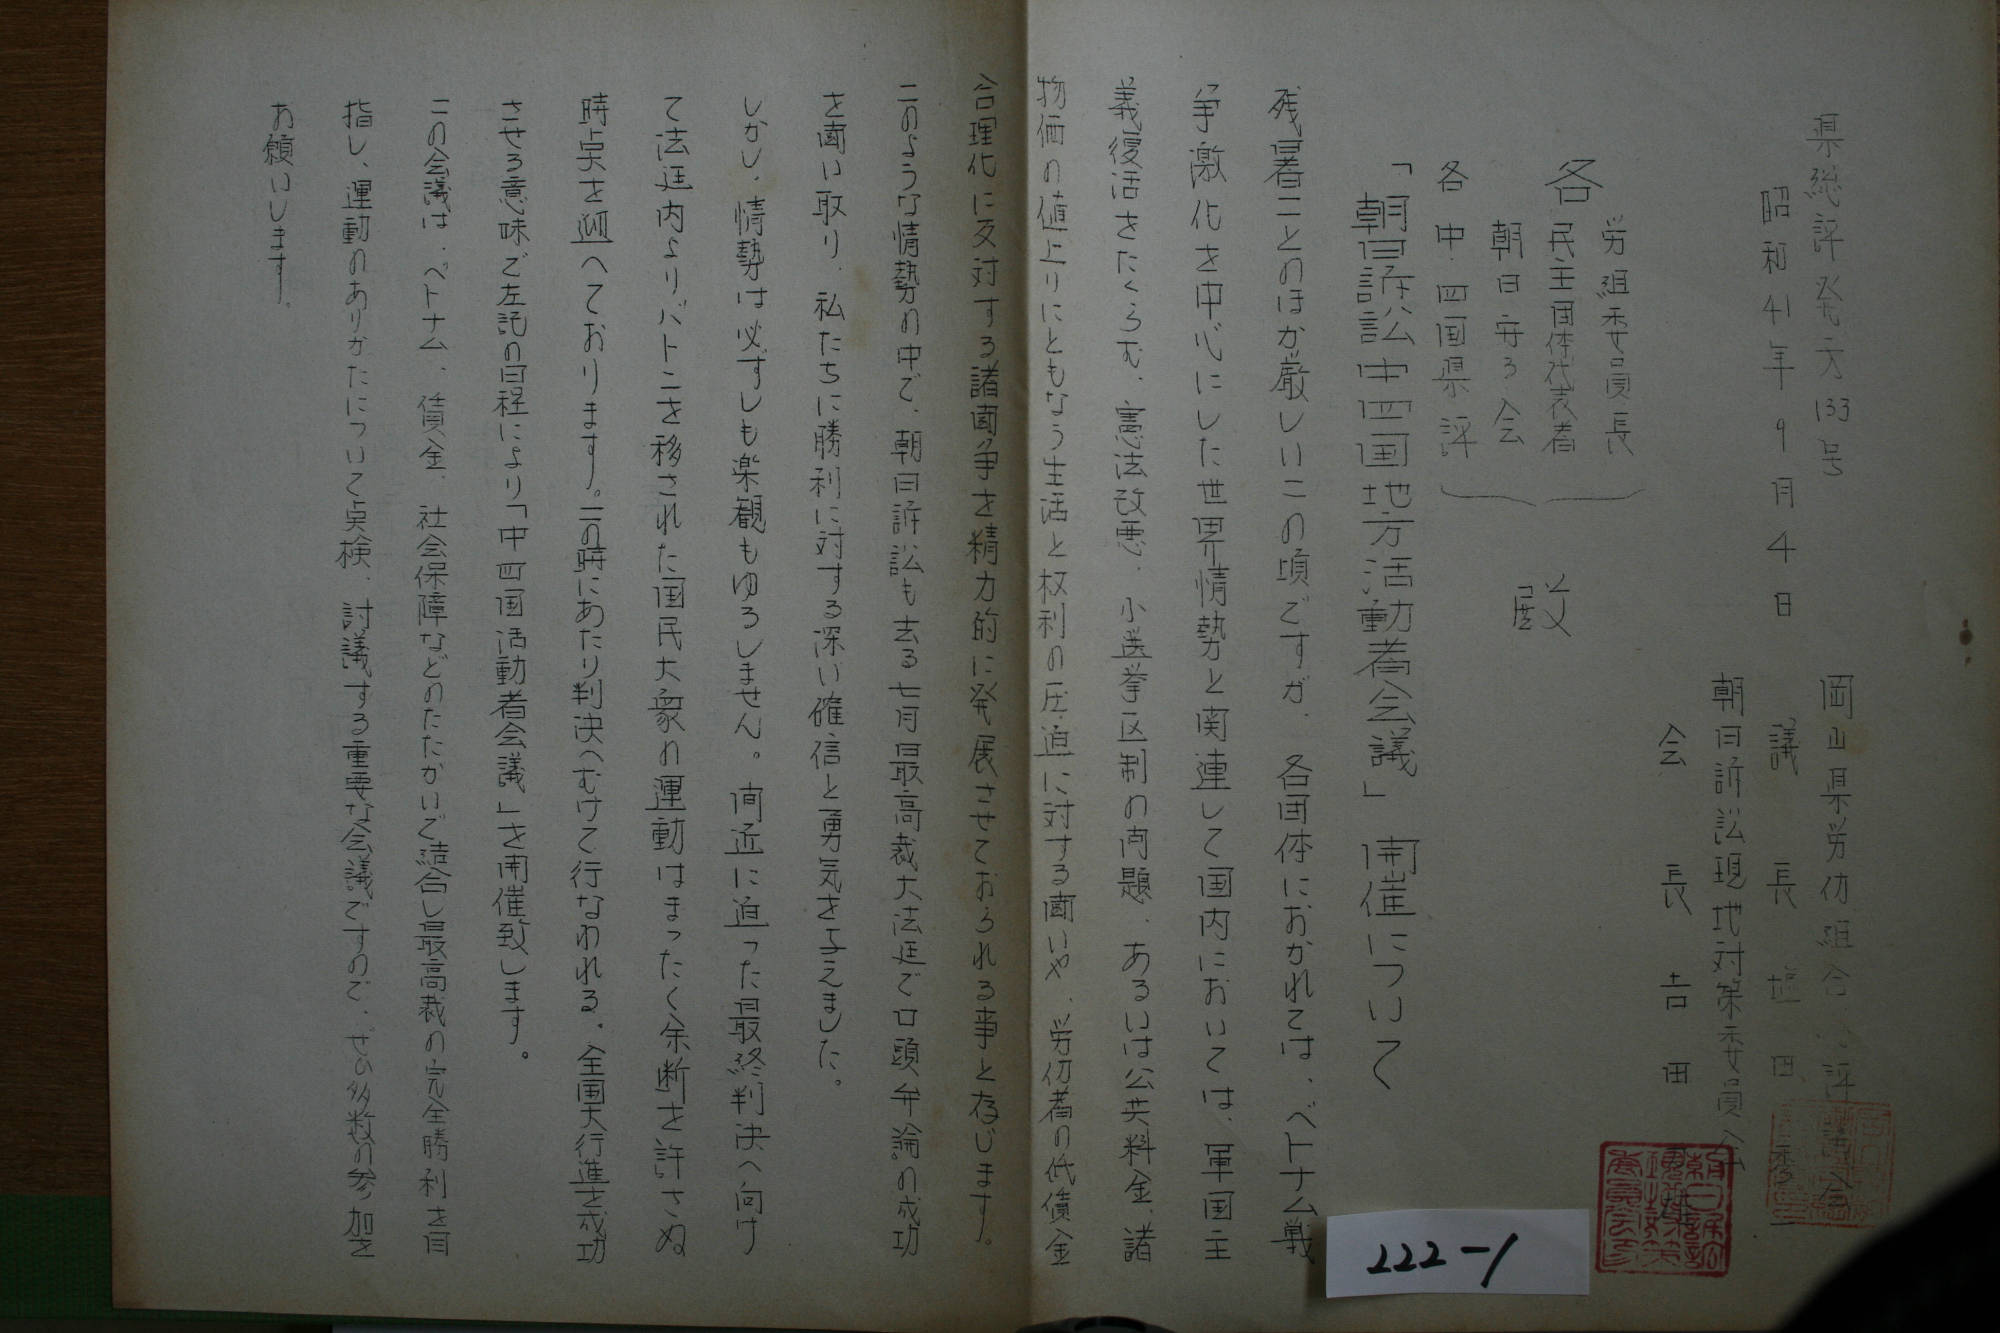 県総評発才133号
昭和41年9月4日
岡山県労仂組合 評議会
議長 塩田
朝日訴訟現地対策委員会
会長 吉田
労組委員長
各民主団体代表者
朝日守る会
各中・四国県評
殿
「朝日訴訟中四国地方活動者会議」開催について
残暑ことのほか厳しいこの頃ですが、各団体におかれては、ベトナム戦
争激化を中心にした世界情勢と関連して国内においては、軍国主
義復活をたくらむ、憲法改悪、小選挙区制の問題、あるいは公共料金、諸
物価の値上りにともなう生活と权利の圧迫に対する斗いや、労仂者の低賃金
合理化に反対する諸斗争を精力的に発展させておられる事と存じます。
このような情勢の中で、朝日訴訟も去る七月最高裁大法廷で口頭弁論の成功
を斗い取り、私たちに勝利に対する深い確信と勇気を与えました。
しかし、情勢は必ずしも楽観もゆるしません。間近に迫った最終判決へ向け
て法廷内よりバトンを移された国民大衆の運動はまったく余断を許さぬ
時点を迎へております。この時にあたり判決へむけて行なわれる、全国大行進を成功
させる意味で左記の日程により「中四国活動者会議」を開催致します。
この会議は、ベトナム、賃金、社会保障などのたたかいで結合し最高裁の完全勝利を目
指し、運動のありかたについて点検、討議する重要な会議ですので、ぜひ多数の参加を
お願いします。
222-1